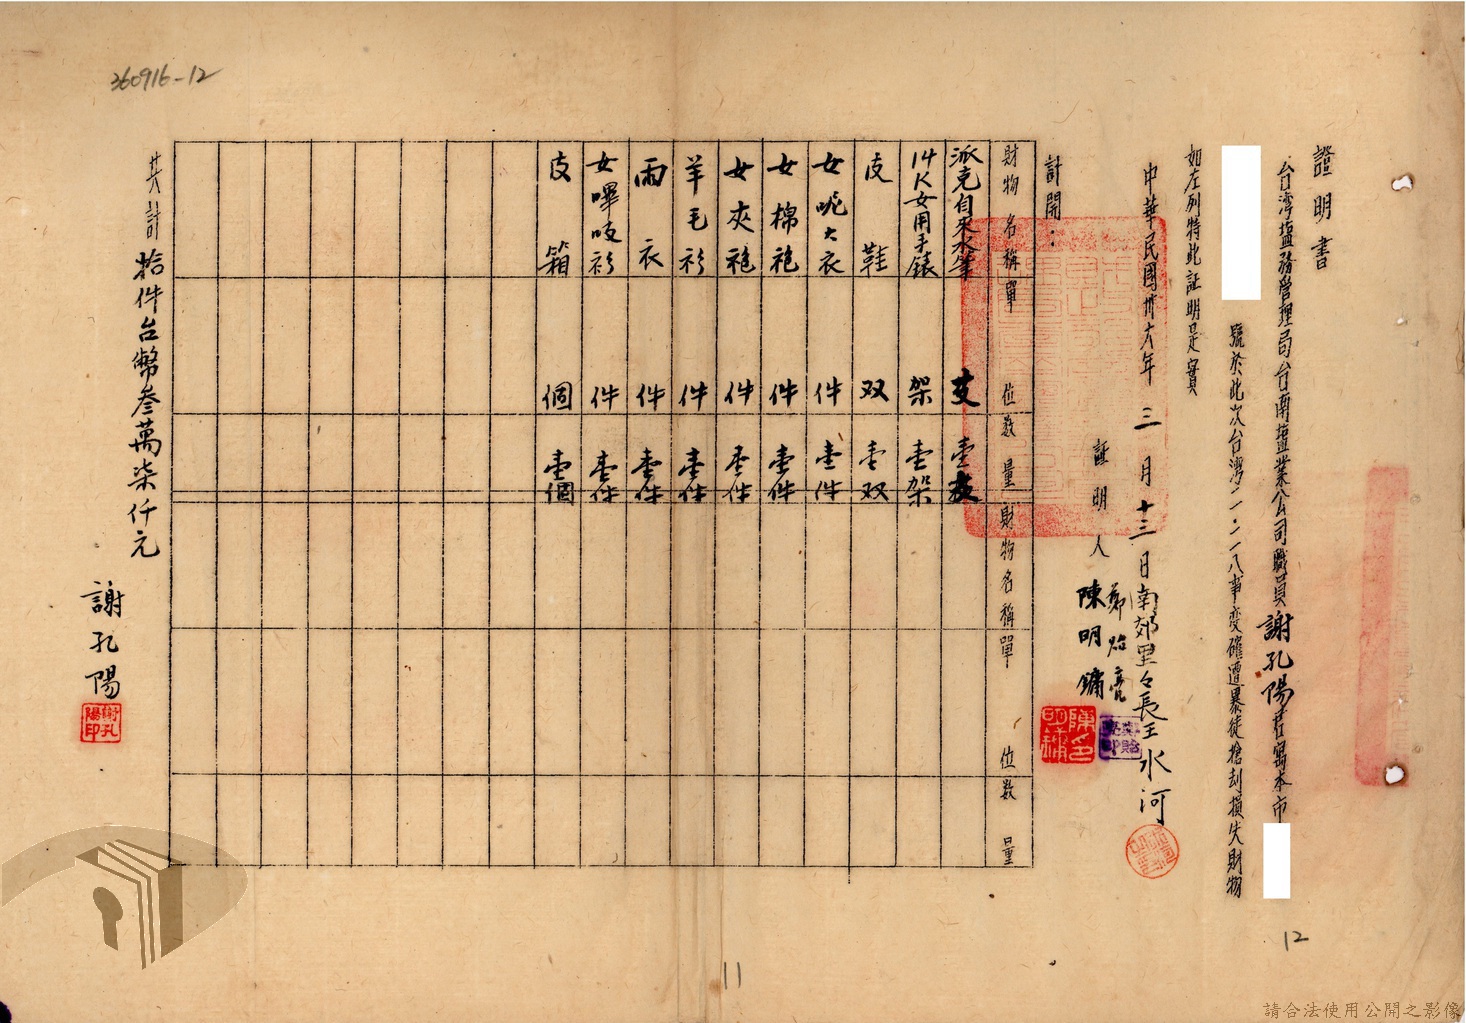 360916-12
證明書
台湾塩務管理局台南塩業公司職員謝孔陽君寓本市
號於此次台湾二·二八事变確遭暴徒搶刦損失財物
如左列特此証明是實
中華民國卅六年三月十三日南郊里々長王水河
証明人
鄭貽
陳明鏞
計開：
財物名稱單位数量財物名稱單位数量
派克自來水筆 支 壹支
14K女用手錶 架 壹架
皮鞋 双 壹双
女呢大衣 件 壹件
女棉袍 件 壹件
女夾袍 件 壹件
羊毛衫 件 壹件
雨衣 件 壹件
女嗶吱衫 件 壹件
皮箱 個 壹個
共計拾件台幣叁萬柒仟元
謝孔陽
謝孔陽印
12
11
請合法使用公開之影像